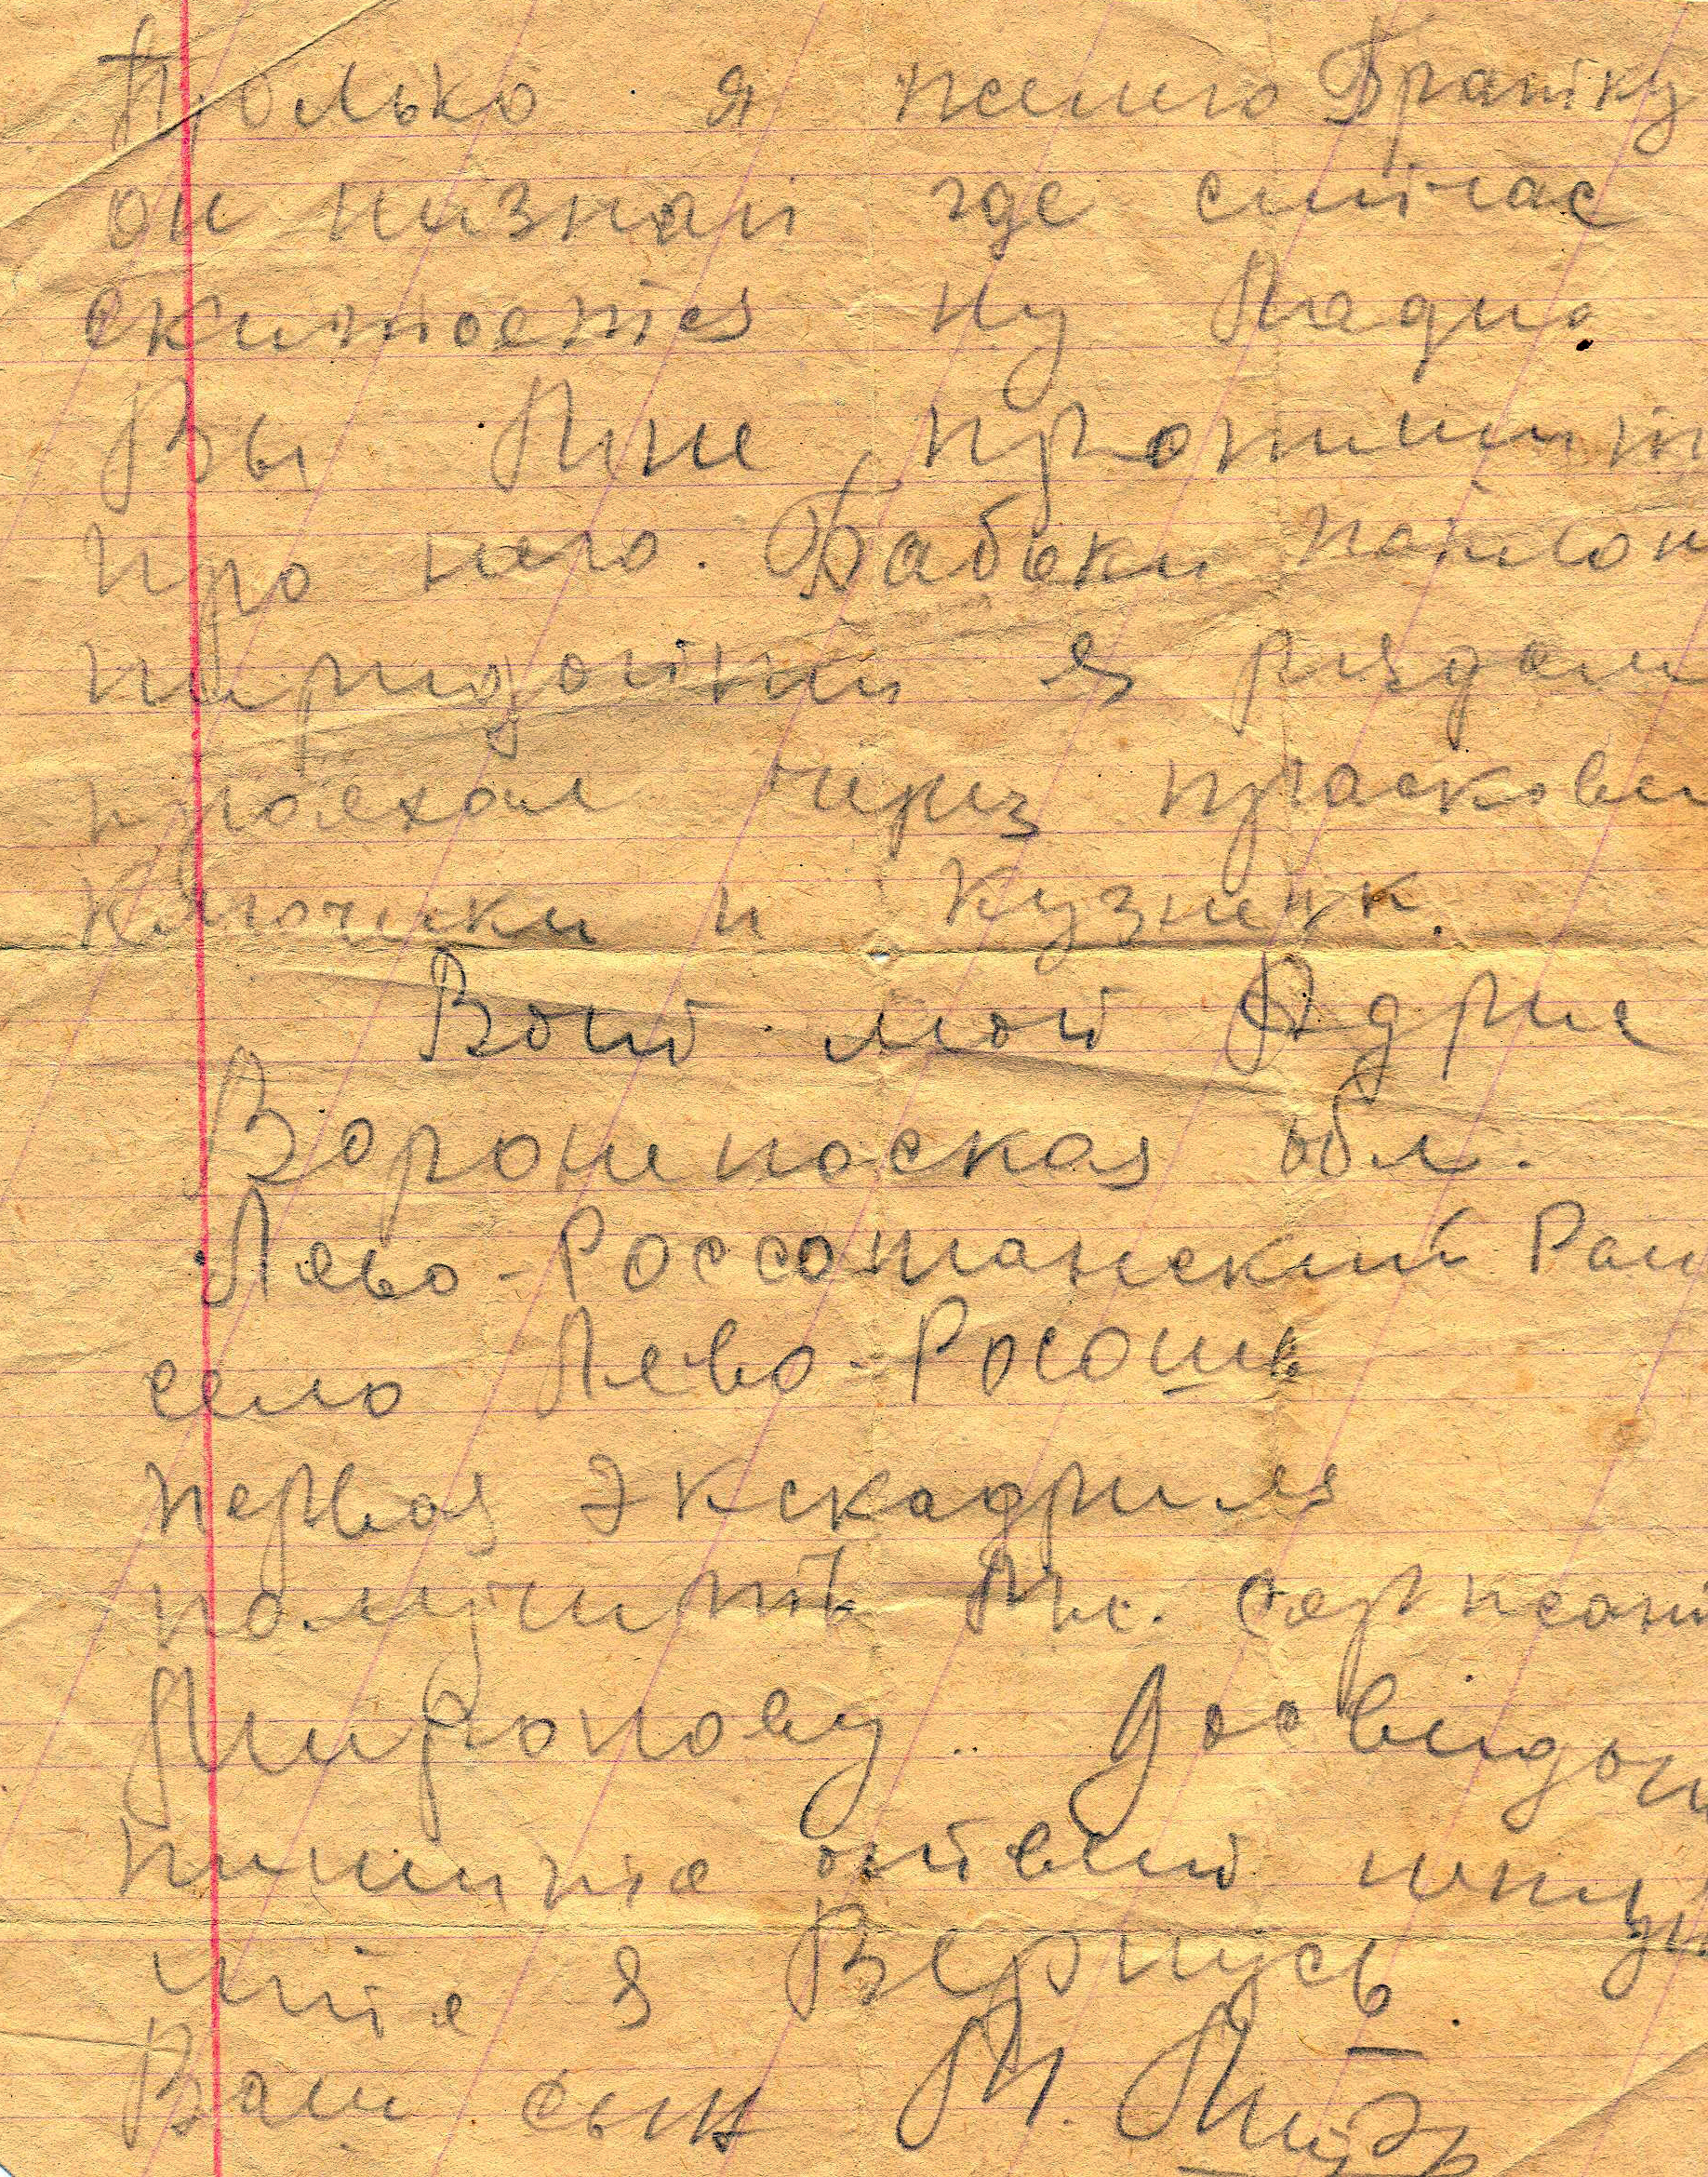 Только я жилею Братку
он низнаю где сичас
скитается ну Ладно.
Вы Мне пропишит
про него. Бабоки поклон
пиридайти я рядом
проехал чириз прасковь
ключики и Кузнецк.
Вот мой Адрис
Воронижоская обл.
Лево-Россошанский Рай
село Лево-Росошь
первая Экскадриля
получить Мл. сержант
Миронову. Досвидан
пишите ответ
ите я Вернусь
Ваш сын М. Мир